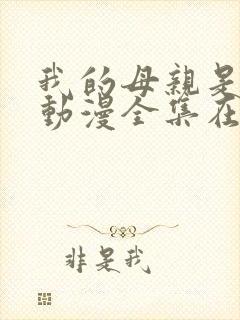 我的母親是
動漫全集在
非是我